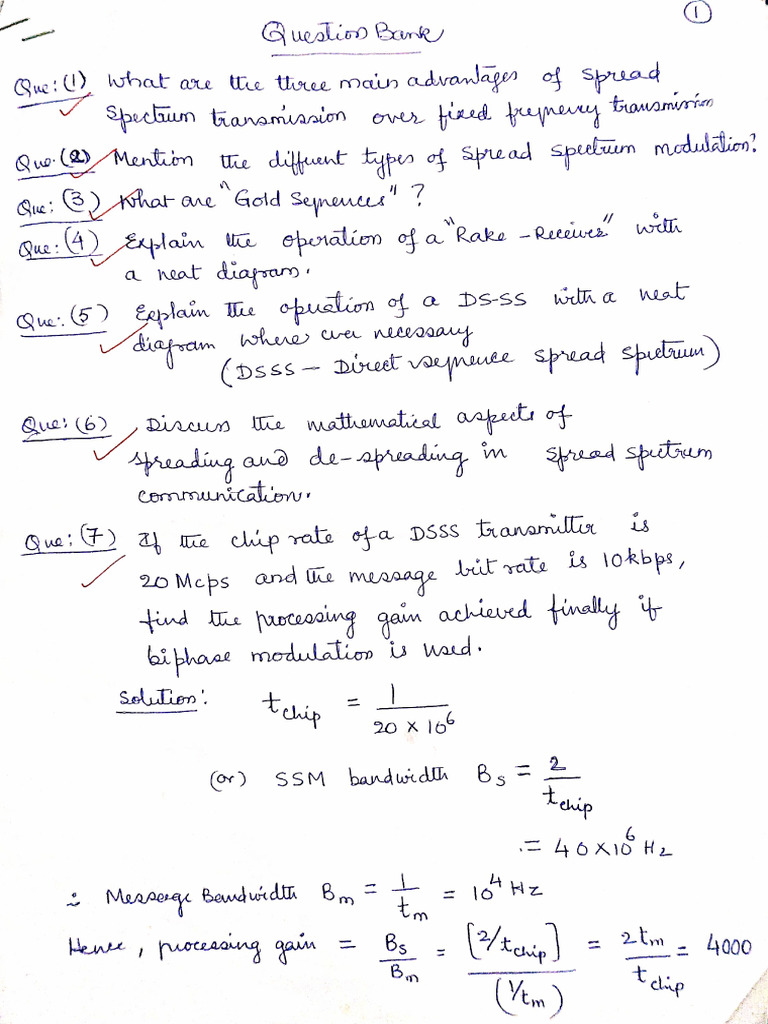 1
Question Bank
Que: (1) What are the three main advantages of spread
spectrum transmission over fixed frequency transmission
Que: (2) Mention the different types of spread spectrum modulation?
Que: (3) What are "Gold Sequences" ?
Que: (4) Explain the operation of a "Rake - Receiver" with
a neat diagram.
Que: (5) Explain the operation of a DS-SS with a neat
diagram where ever necessary
(DSSS - Direct sequence spread spectrum)
Que: (6) Discuss the mathematical aspects of
spreading and de-spreading in spread spectrum
communication.
Que: (7) If the chip rate of a DSSS transmitter is
20 Mcps and the message bit rate is 10kbps,
find the processing gain achieved finally if
biphase modulation is used.
Solution: t_chip = 1 / (20 × 10^6)
(or) SSM bandwidth B_s = 2 / t_chip
= 40 × 10^6 Hz
∴ Message Bandwidth B_m = 1 / t_m = 10^4 Hz
Hence, processing gain = B_s / B_m = [2/t_chip] / (1/t_m) = 2t_m / t_chip = 4000